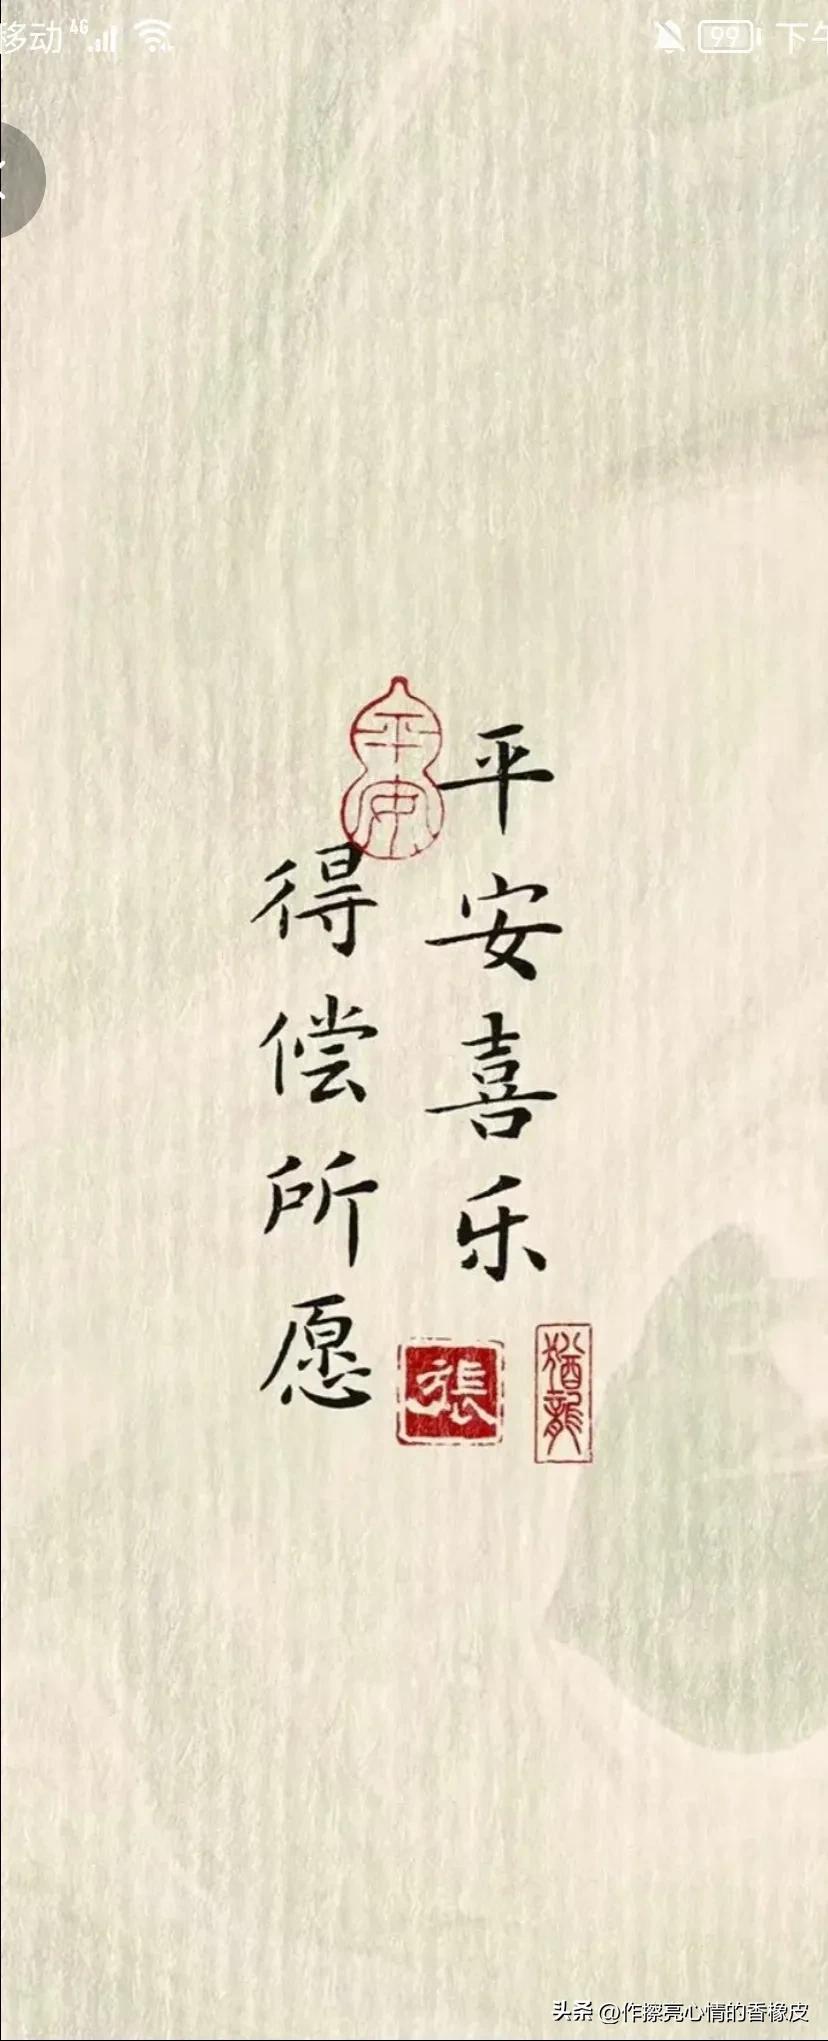 移动 4G 99 下午
平安
平安喜乐
得偿所愿
張
猶龍
头条 @作擦亮心情的香橡皮